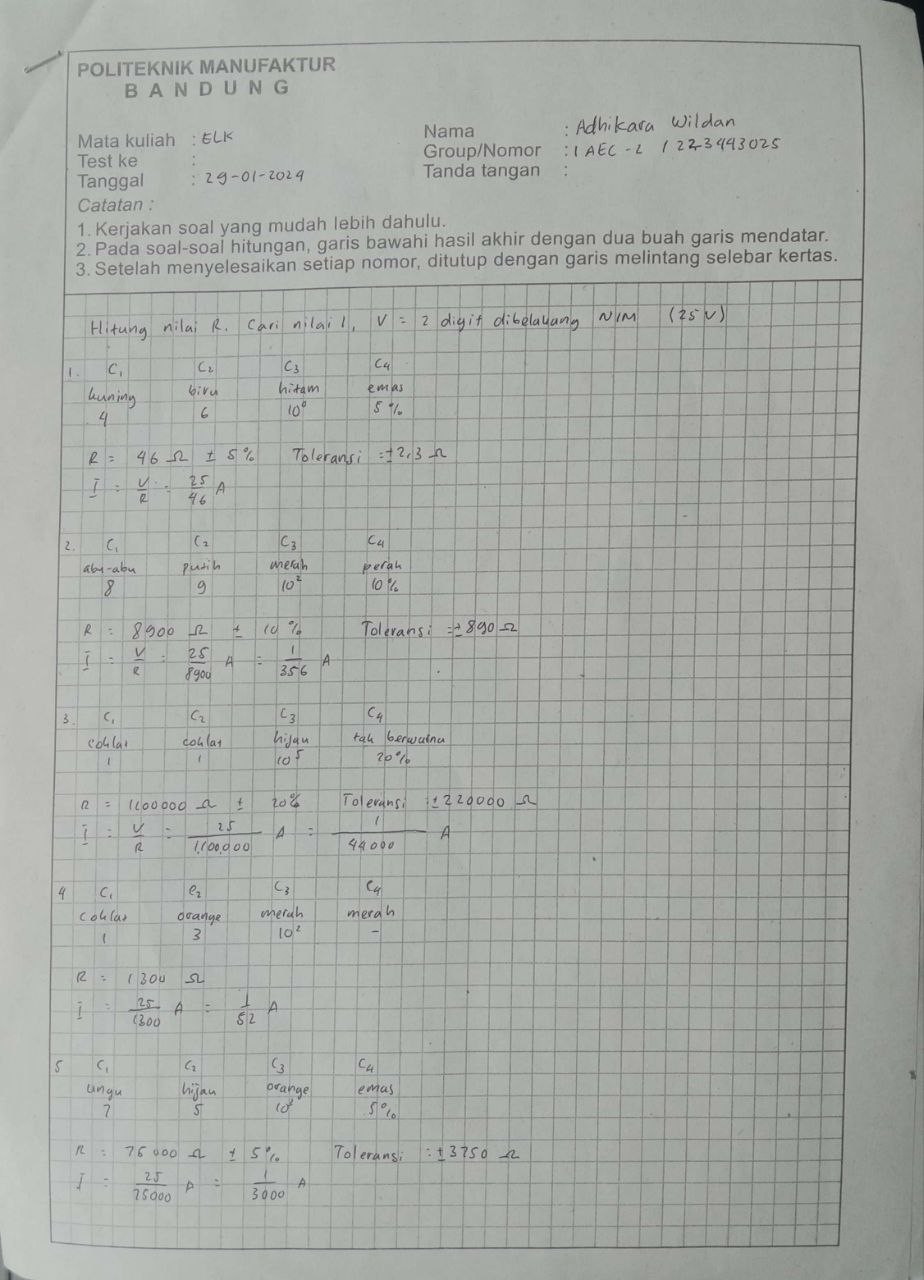 POLITEKNIK MANUFAKTUR
BANDUNG
Mata kuliah : ELK
Test ke :
Tanggal : 29-01-2024
Nama : Adhikara Wildan
Group/Nomor : 1 AEC-2 / 223443025
Tanda tangan :
Catatan :
1. Kerjakan soal yang mudah lebih dahulu.
2. Pada soal-soal hitungan, garis bawahi hasil akhir dengan dua buah garis mendatar.
3. Setelah menyelesaikan setiap nomor, ditutup dengan garis melintang selebar kertas.
Hitung nilai R. Cari nilai I, V = 2 digit dibelakang NIM (25 V)
1. C₁ C₂ C₃ C₄
kuning biru hitam emas
4 6 10⁰ 5 %
R = 46 Ω ± 5 % Toleransi = ± 2,3 Ω
I = V/R = 25/46 A
2. C₁ C₂ C₃ C₄
abu-abu putih merah perak
8 9 10² 10 %
R = 8900 Ω ± 10 % Toleransi = ± 890 Ω
I = V/R = 25/8900 A = 1/356 A
3. C₁ C₂ C₃ C₄
coklat coklat hijau tak berwarna
1 1 10⁵ 20 %
R = 1100000 Ω ± 20% Toleransi : ± 220000 Ω
I = V/R = 25/1.100.000 A = 1/44000 A
4 C₁ C₂ C₃ C₄
coklat orange merah merah
1 3 10² -
R = 1300 Ω
I = 25/1300 A = 1/52 A
5 C₁ C₂ C₃ C₄
ungu hijau orange emas
7 5 10³ 5 %
R = 75000 Ω ± 5 % Toleransi : ± 3750 Ω
I = 25/75000 A = 1/3000 A